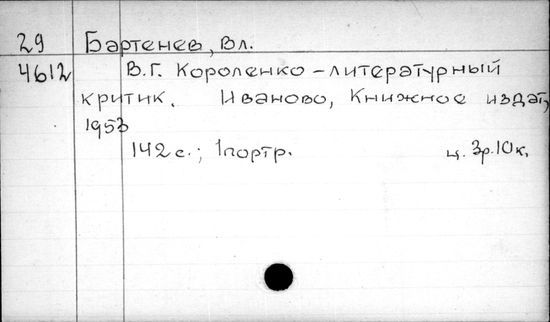 29 Бартенев, Вл.
4612 В.Г. Короленко – литературный
критик. Иваново, Книжное издат,
1953
142 с.; 1 портр. ц. 3р.10к.